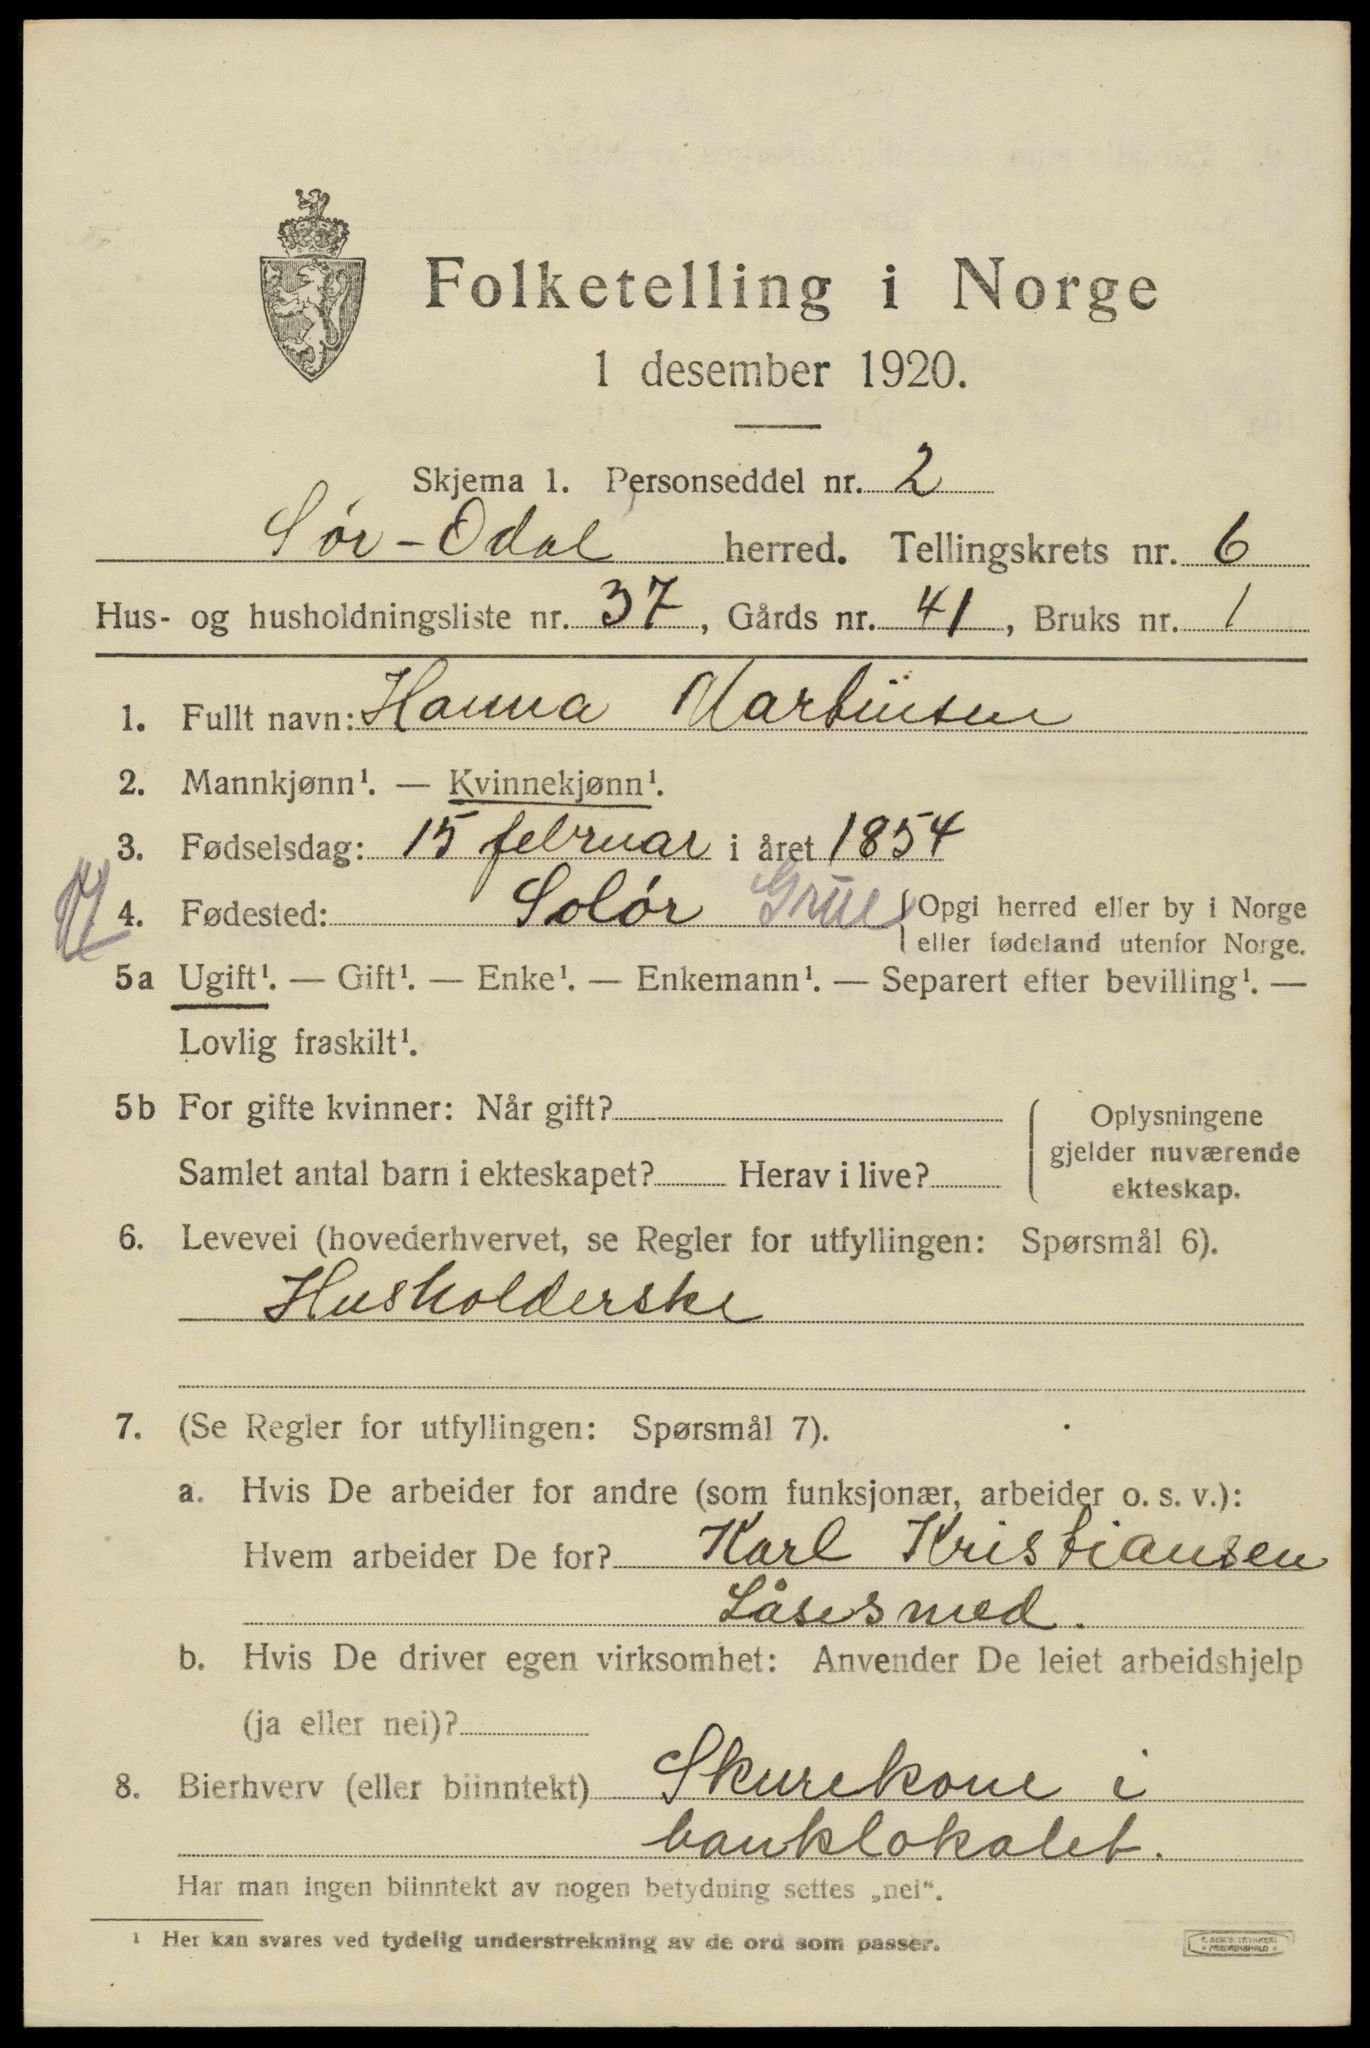 Folketelling i Norge
1 desember 1920.
Skjema 1. Personseddel nr. 2
Sør-Odal herred. Tellingskrets nr. 6
Hus- og husholdningsliste nr. 37, Gårds nr. 41, Bruks nr. 1
1. Fullt navn: Hanna Martinsen
2. Mannkjønn¹. — Kvinnekjønn¹.
3. Fødselsdag: 15 februar i året 1854
4. Fødested: Solør Grue {Opgi herred eller by i Norge
eller fødeland utenfor Norge.
5a Ugift¹. — Gift¹. — Enke¹. — Enkemann¹. — Separert efter bevilling¹. —
Lovlig fraskilt¹.
5b For gifte kvinner: Når gift?
Samlet antal barn i ekteskapet? Herav i live?
Oplysningene
gjelder nuværende
ekteskap.
6. Levevei (hovederhvervet, se Regler for utfyllingen: Spørsmål 6).
Husholderske
7. (Se Regler for utfyllingen: Spørsmål 7).
a. Hvis De arbeider for andre (som funksjonær, arbeider o. s. v.):
Hvem arbeider De for? Karl Kristiansen
Låsesmed.
b. Hvis De driver egen virksomhet: Anvender De leiet arbeidshjelp
(ja eller nei)?
8. Bierhverv (eller biinntekt) Skurekone i
banklokalet.
Har man ingen biinntekt av nogen betydning settes „nei“.
¹ Her kan svares ved tydelig understrekning av de ord som passer.